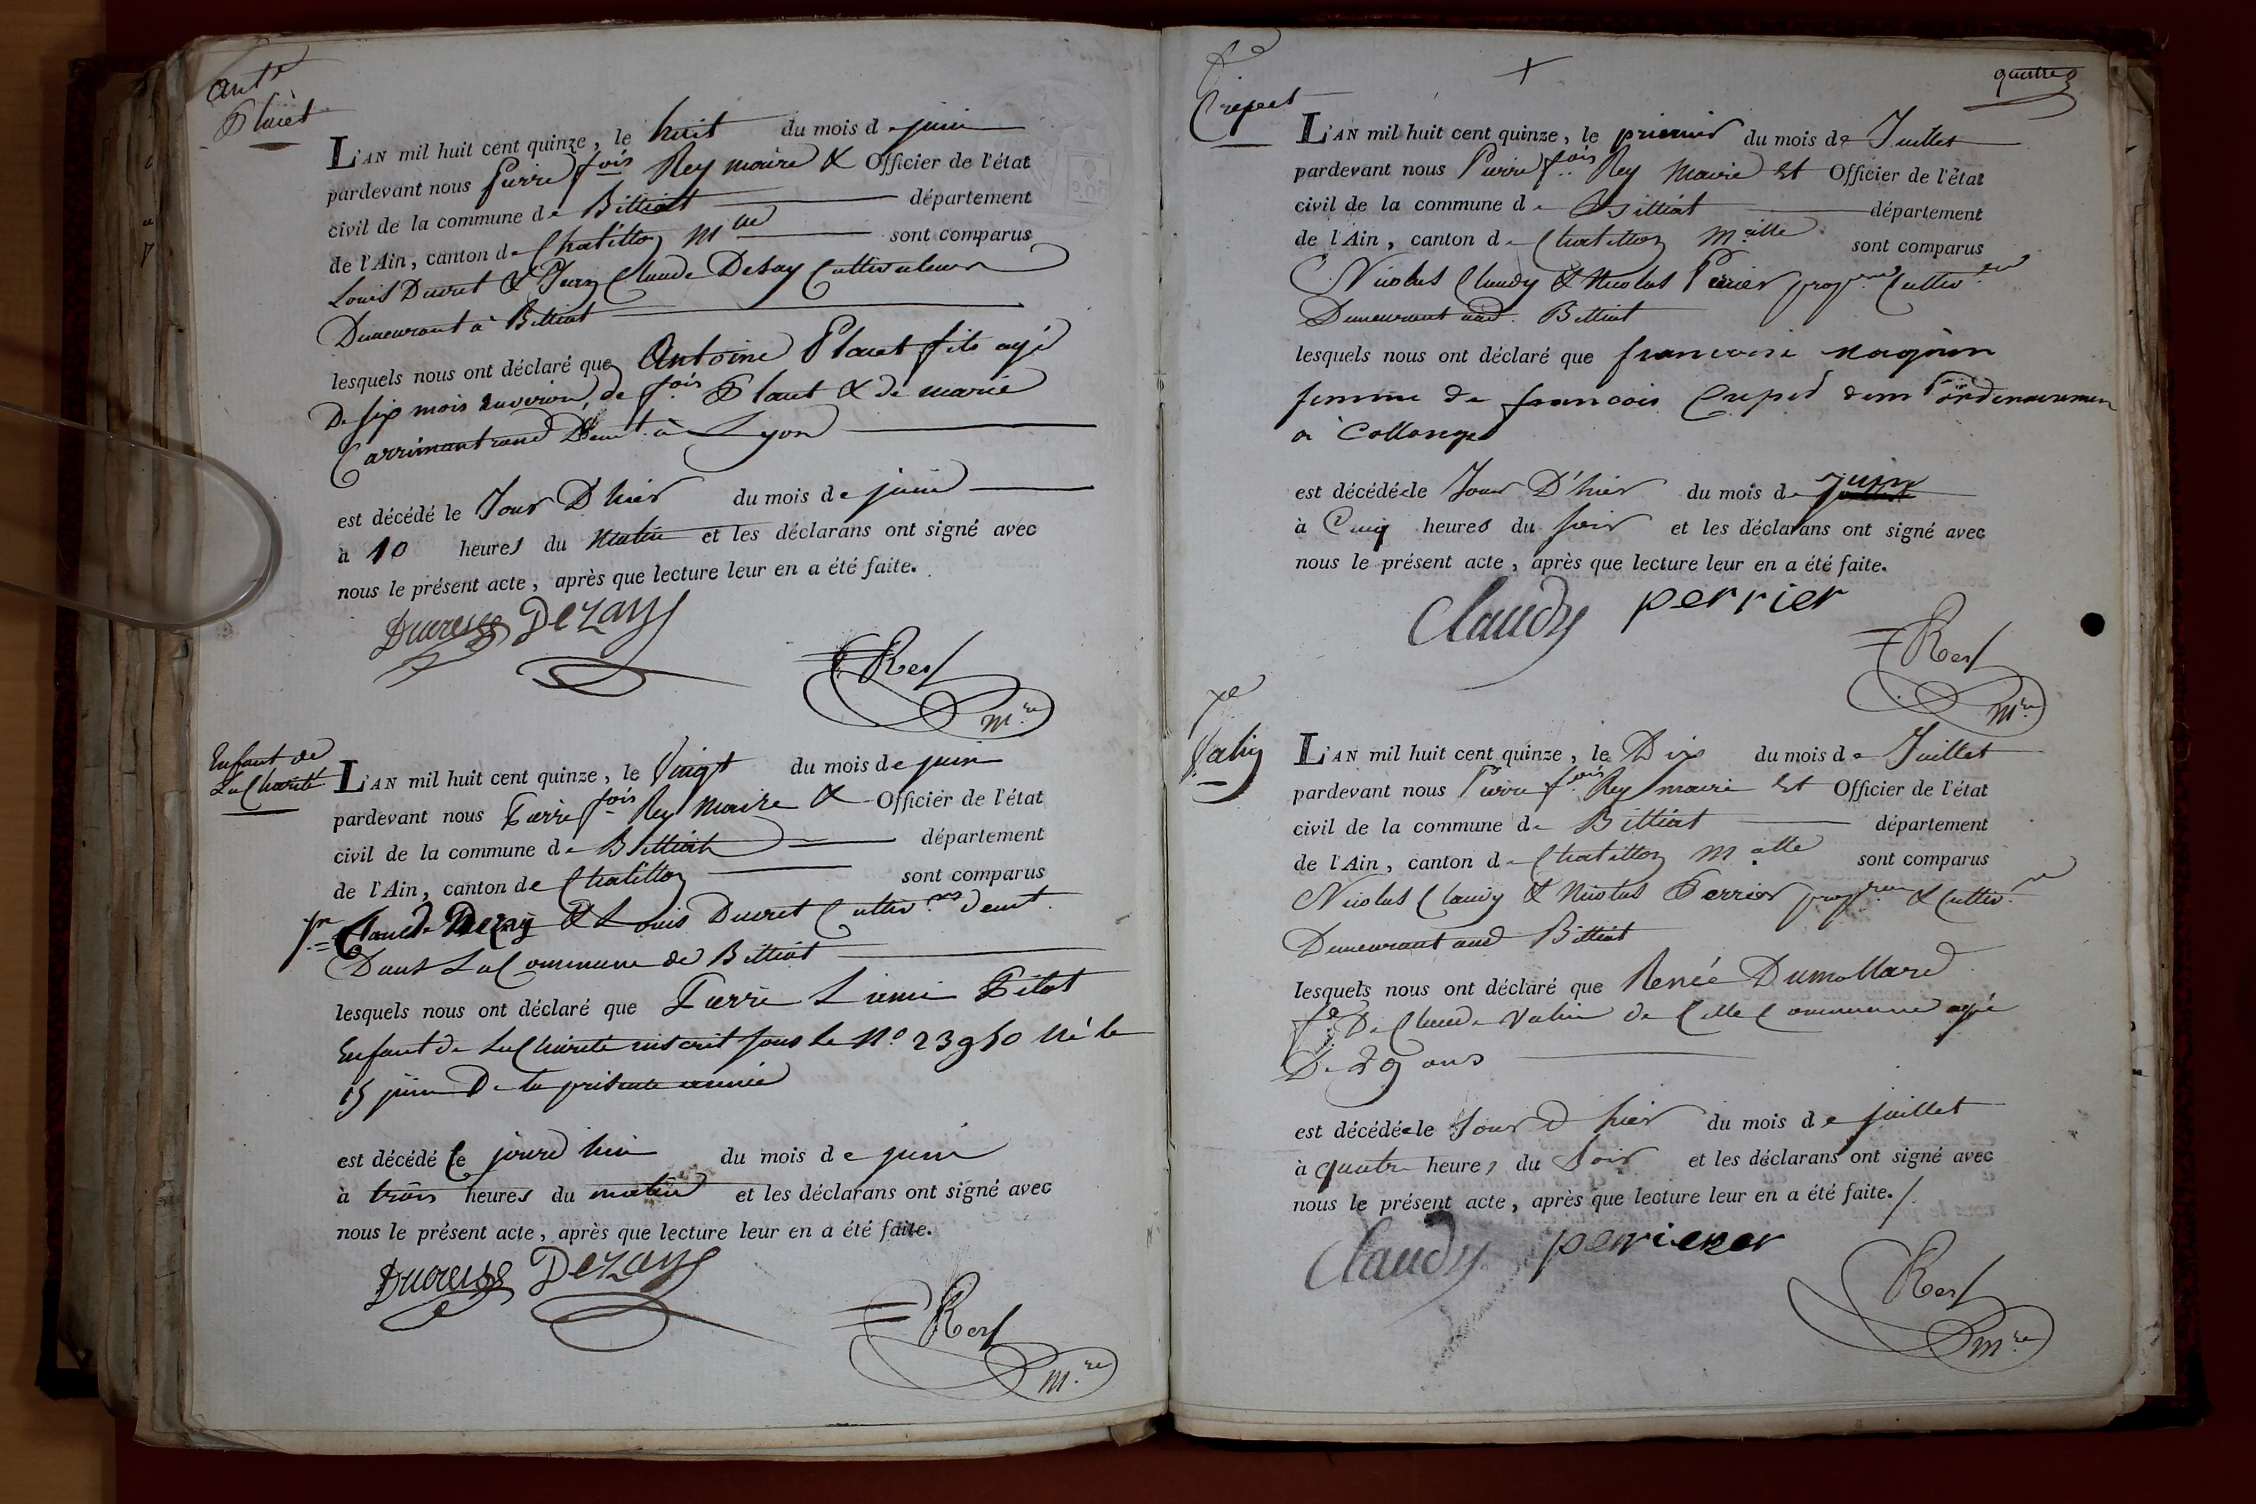 ant.e
Placet
L'AN mil huit cent quinze, le huit du mois de juin
pardevant nous pierre fois Rey maire & Officier de l'état
civil de la commune de Billiat département
de l'Ain, canton de Chatillon sont comparus
Louis Ducret & Jean Claude Desay Cultivateurs
Demeurant à Billiat
lesquels nous ont déclaré que Antoine Placet fils agé
De six mois environ, de fois Placet & de marie
à Lyon
est décédé le Jour D'hier du mois de juin
à 10 heures du matin et les déclarans ont signé avec
nous le présent acte, après que lecture leur en a été faite.
Dezay
Rey
m.re
Enfant de
La Charité
L'AN mil huit cent quinze, le Vingt du mois de juin
pardevant nous Pierre fois Rey Maire & Officier de l'état
civil de la commune de Billiat département
de l'Ain, canton de Chatillon sont comparus
Claude Dezay & Louis Ducret Cultiv.rs demt.
Dans La Commune de Billiat
lesquels nous ont déclaré que Pierre Pilot
Enfant de La Charité inscrit sous le N.o 23950 Né le
15 juin De la présente année
est décédé le jourd hier du mois de juin
à trois heures du matin et les déclarans ont signé avec
nous le présent acte, après que lecture leur en a été faite.
Dezay
Rey
m.re
quatre
fe
Crepet
L'AN mil huit cent quinze, le premier du mois de Juillet
pardevant nous Pierre fois Rey Maire Et Officier de l'état
civil de la commune de Billiat département
de l'Ain, canton de Chatillon M.aille sont comparus
Nicolas Claudy & Nicolas Perrier Cultiv.
Demeurant aud. Billiat
lesquels nous ont déclaré que francoise
femme de francois Crepet dem ordenairemen
a Collonge
est décédée le Jour D'hier du mois de juin
à Cinq heures du soir et les déclarans ont signé avec
nous le présent acte, après que lecture leur en a été faite.
Claudy perrier
Rey
m.re
fe
Valin
L'AN mil huit cent quinze, le Dix du mois de Juillet
pardevant nous Pierre fois Rey maire Et Officier de l'état
civil de la commune de Billiat département
de l'Ain, canton de Chatillon M.aille sont comparus
Nicolas Claudy & Nicolas Perrier & Cultiv.
Demeurant aud Billiat
lesquels nous ont déclaré que Renée Dumollard
fe De Claude Valin de Cette Commune agée
De 29 ans
est décédée le Jour d hier du mois de juillet
à quatre heures du Soir et les déclarans ont signé avec
nous le présent acte, après que lecture leur en a été faite./.
Claudy
Rey
m.re